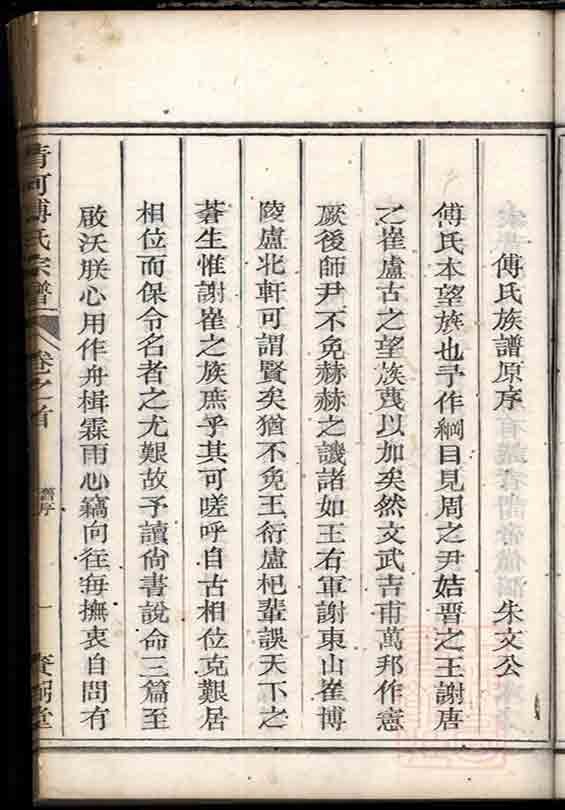 傅氏族譜原序
朱文公
傅氏本望族也予作綱目見周之尹姞晋之王謝唐
之崔盧古之望族蔑以加矣然文武吉甫萬邦作憲
厥後師尹不免赫赫之譏諸如王右軍謝東山崔博
陵盧北軒可謂賢矣猶不免王衍盧杞輩誤天下之
蒼生惟謝崔之族庶乎其可嗟呼自古相位克艱居
相位而保令名者之尤艱故予讀尙書說命三篇至
啟沃朕心用作舟楫霖雨心竊向往每撫衷自問有
清河傅氏宗譜
卷之首
舊序
一